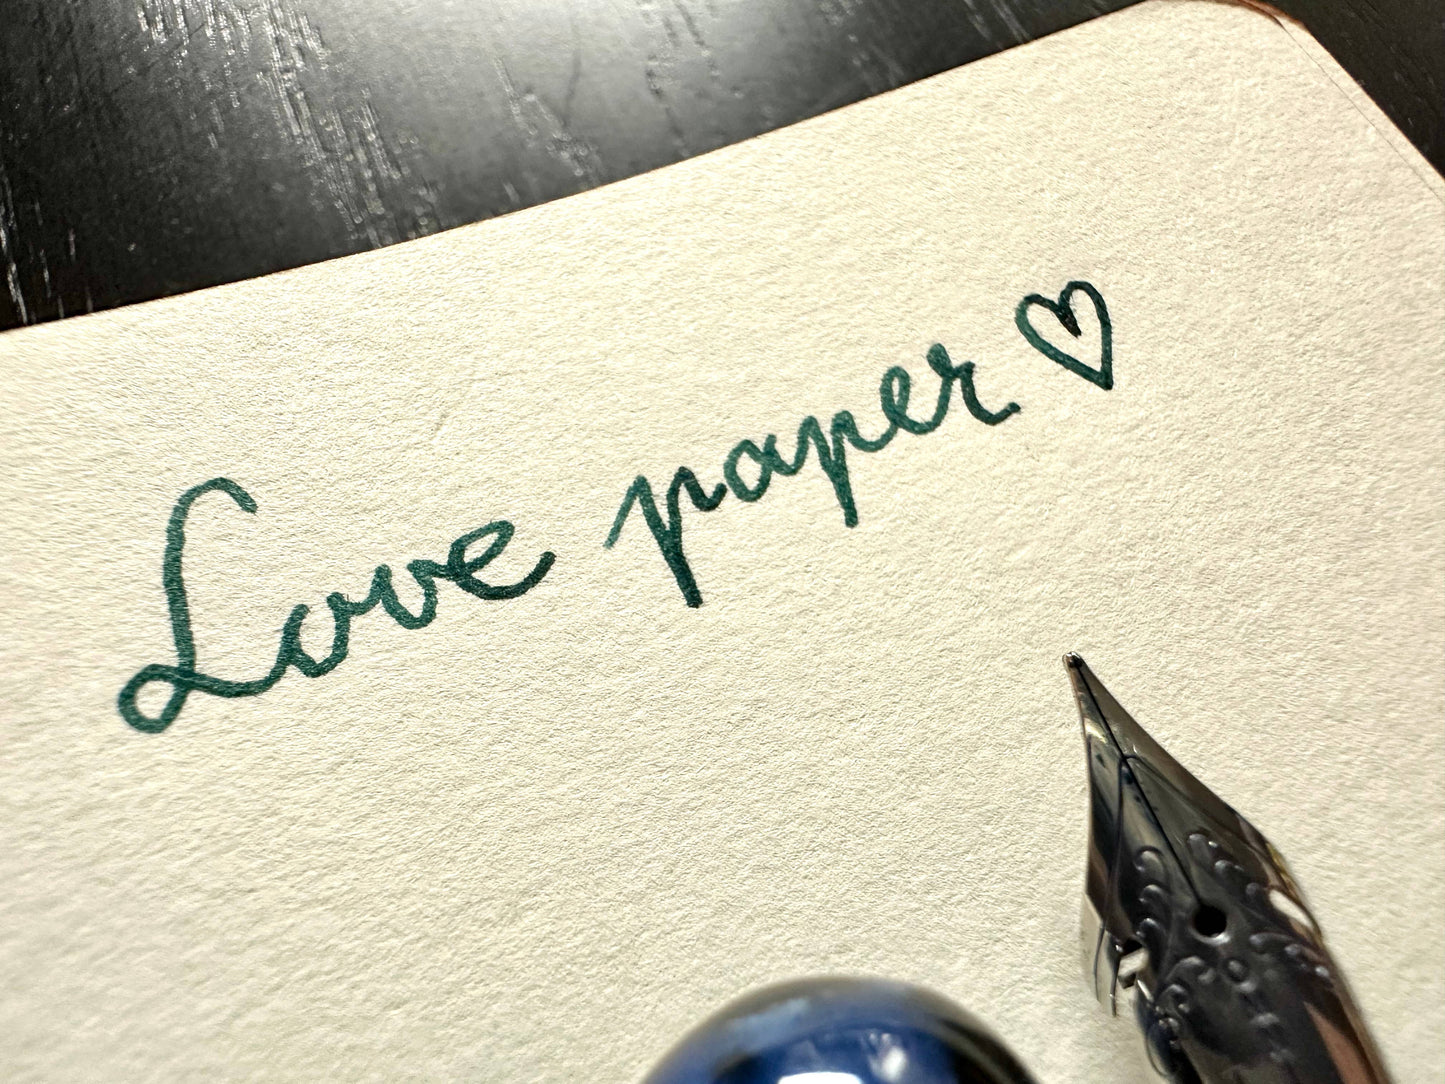 Love paper ♡